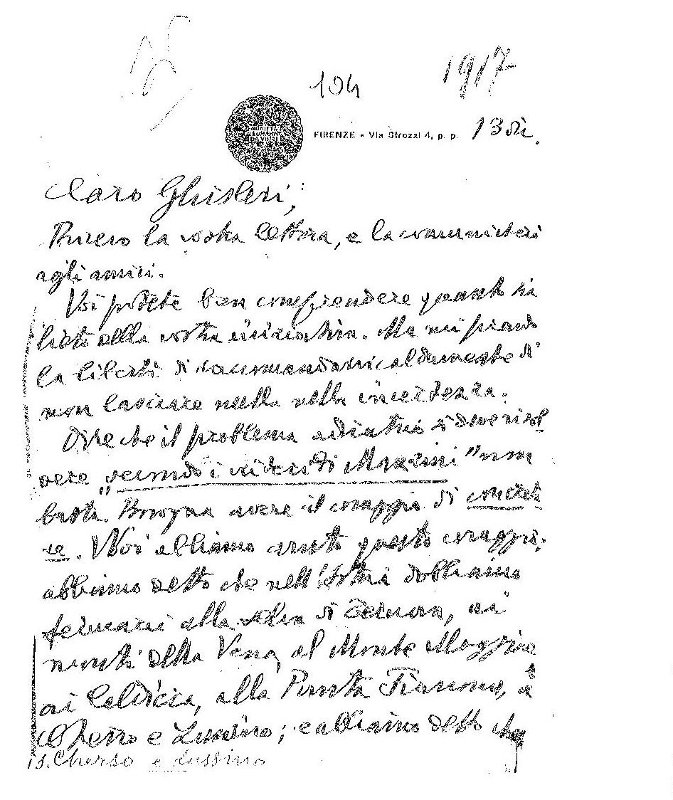 104
1917
FIRENZE - Via Strozzi 4, p. p. 13 dic.
Caro Ghisleri,
Ricevo la vostra lettera, e la comunicherò
agli amici.
Voi potete ben comprendere quanto sia
lieto della vostra iniziativa. Ma mi prendo
la libertà di raccomandarvi caldamente di
non lasciare nulla nella incertezza.
Dire che il problema adriatico si deve risol
vere "secondo i criteri di Mazzini" non
basta. Bisogna avere il coraggio di concreta
re. Noi abbiamo avuto questo coraggio,
abbiamo detto che nell'Istria dobbiamo
fermarci alla di ai
monti della Vena, al Monte Maggiore
ai alla Punta Fianona, a
Cherso e Lussino; e abbiamo detto che
Cherso e Lussino